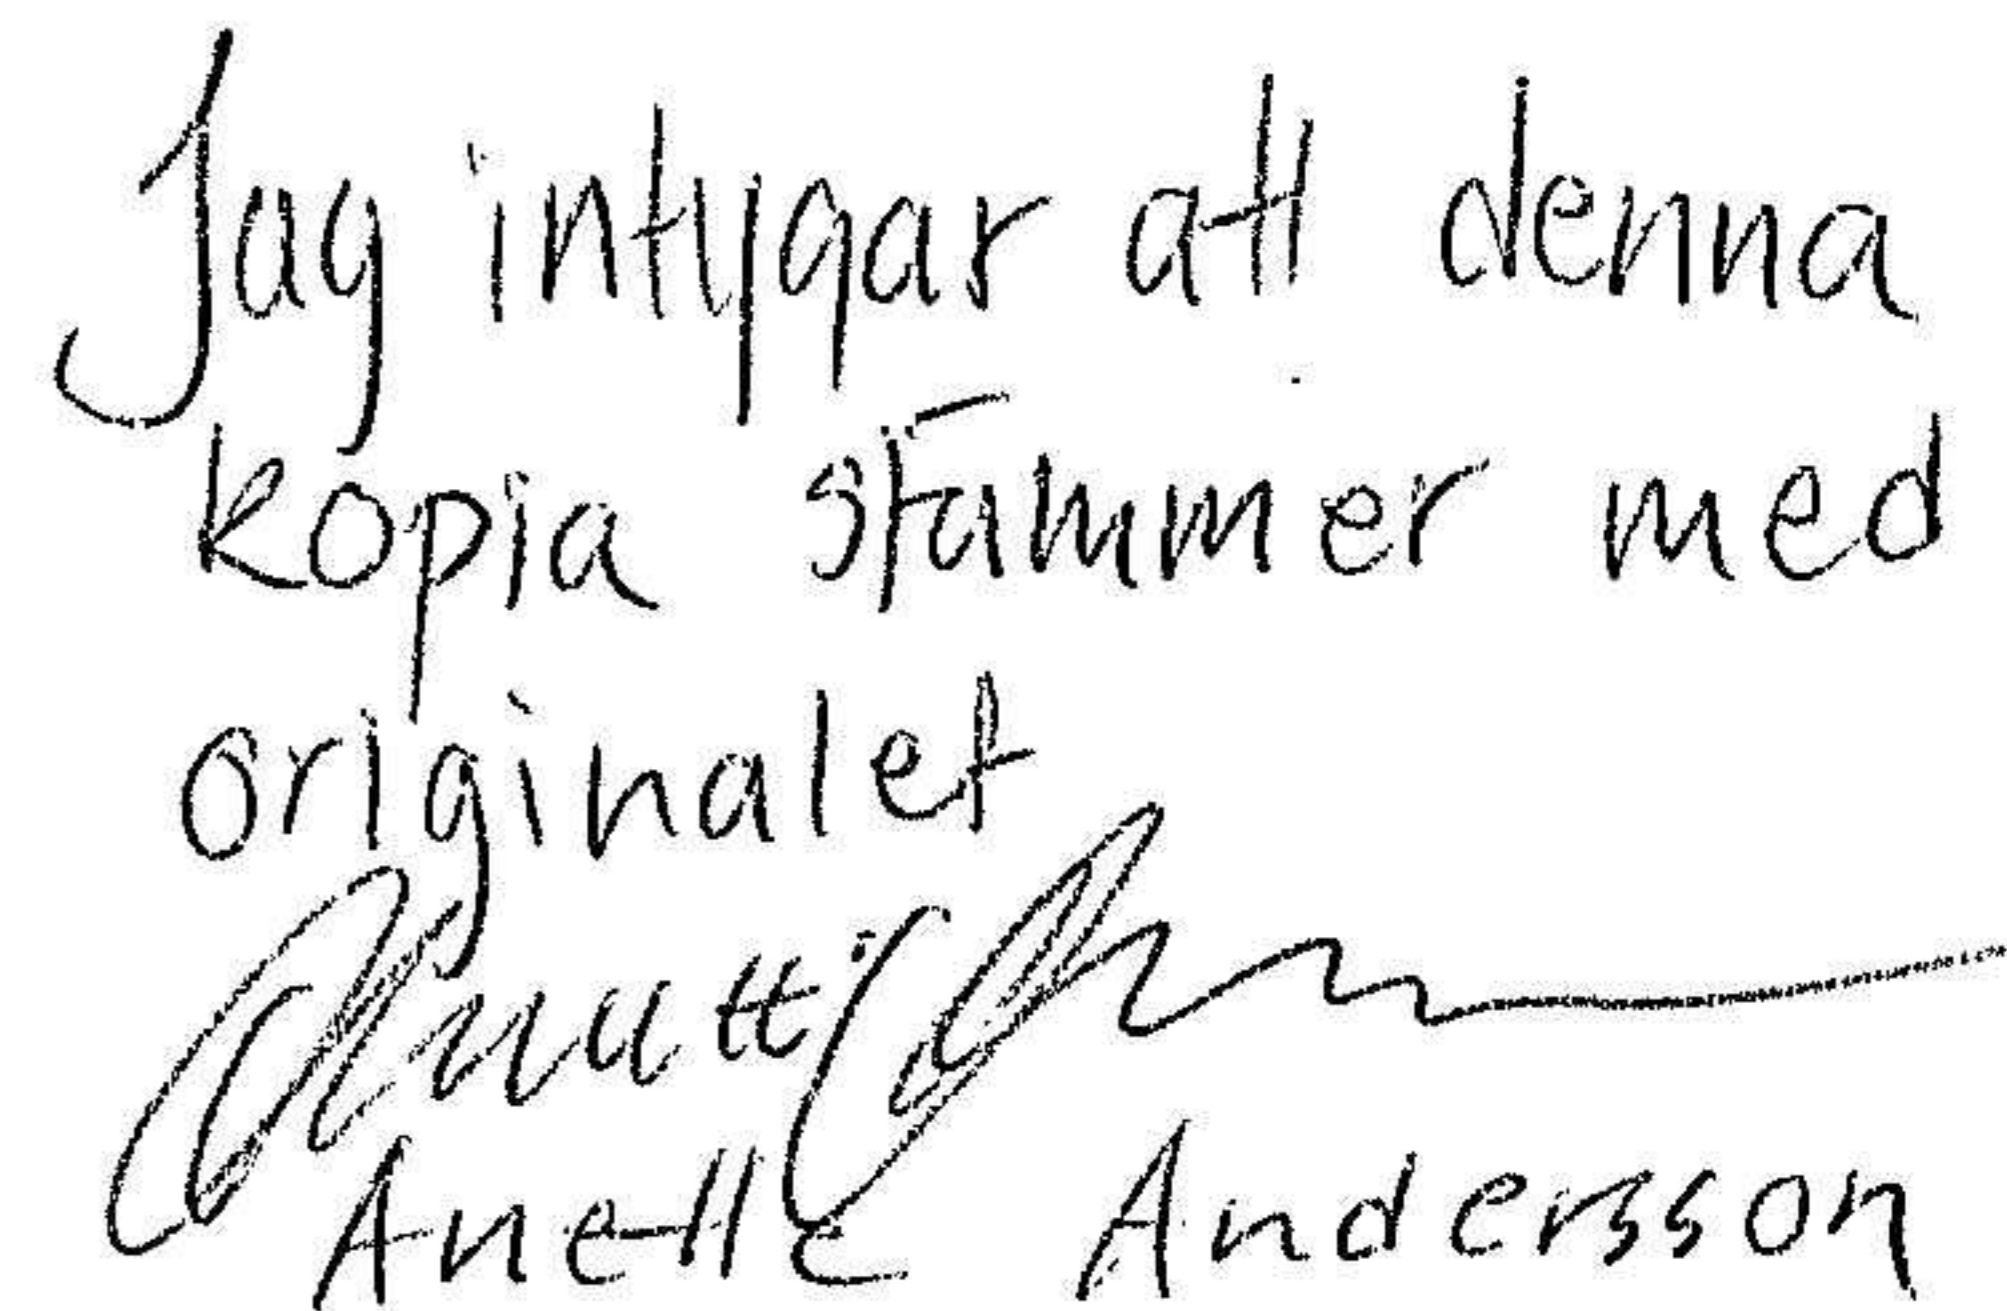 Jag intygar att denna
kopia stämmer med
originalet
Anette Andersson